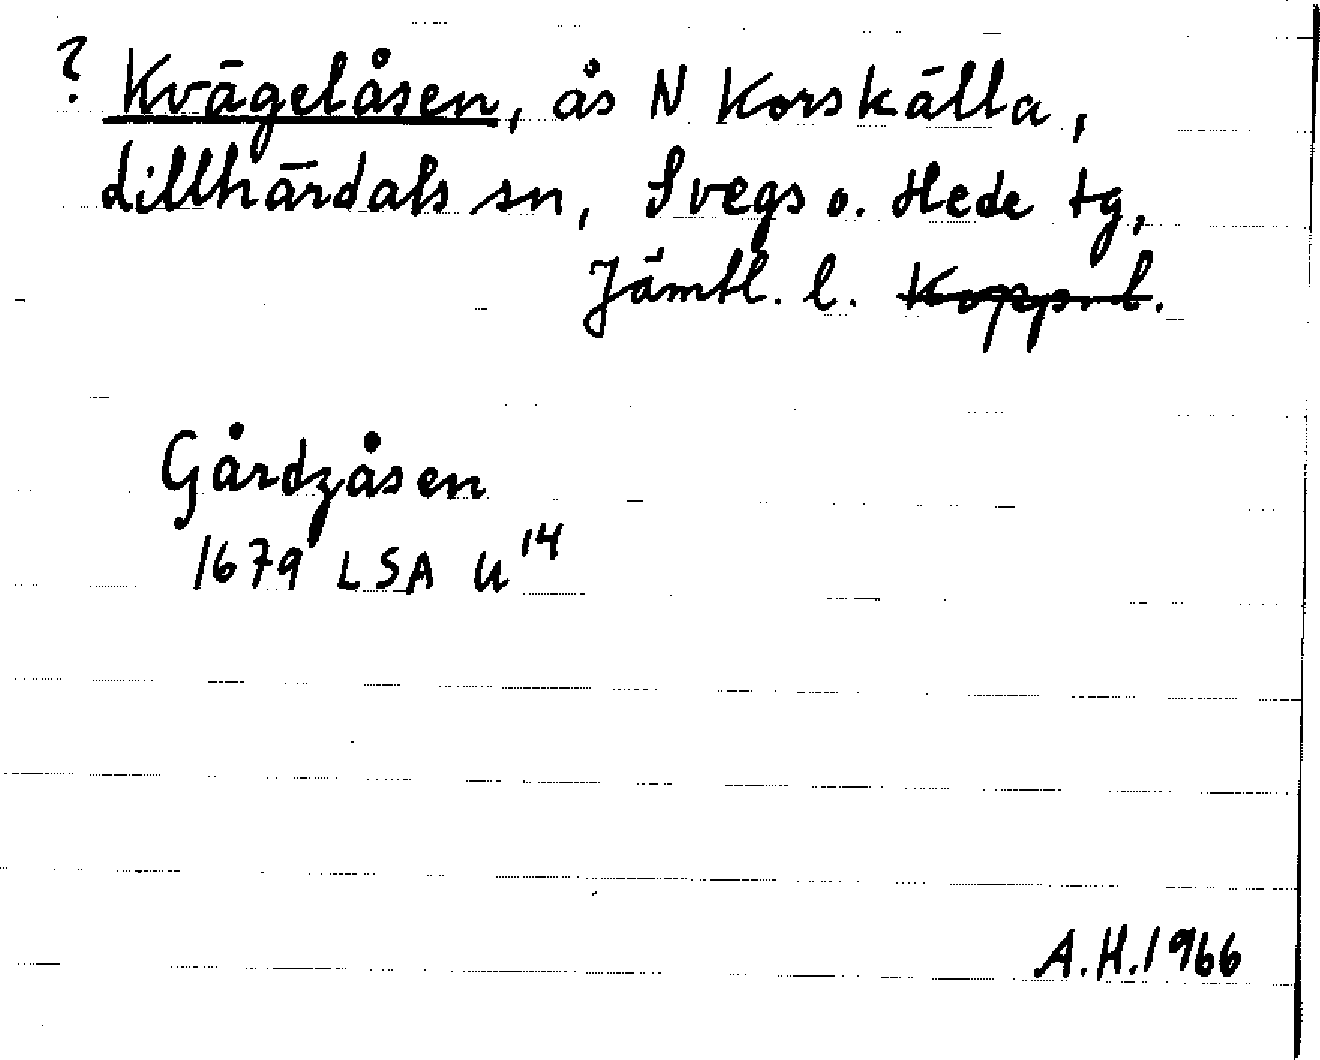 ? Kvägelåsen, ås N Korskälla,
Lillhärdals sn, Svegs o. Hede tg,
Jämtl. l. Kopp. l.
Gårdzåsen
1679 LSA U 14
A.H. 1966